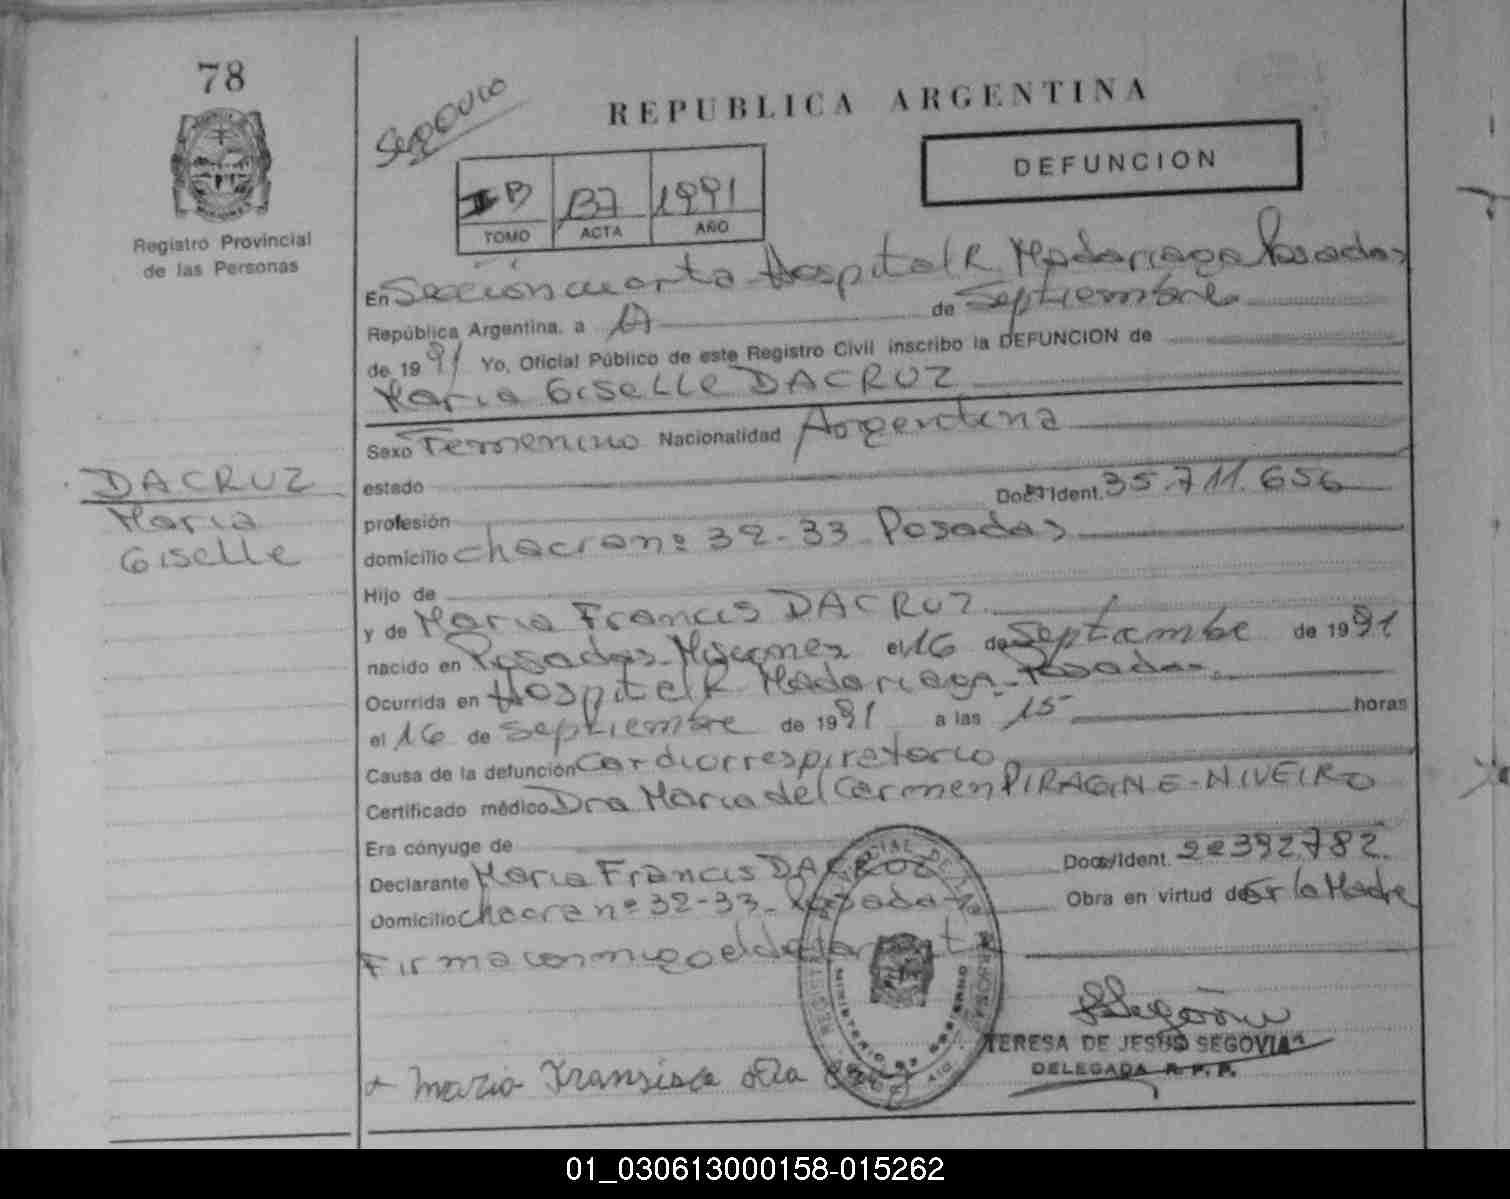 78
REPUBLICA ARGENTINA
DEFUNCION
B 137 1991
TOMO ACTA AÑO
Registro Provincial
de las Personas
En Sección cuarta Hospital R Madariaga Posadas
República Argentina, a de Septiembre
de 1991 Yo, Oficial Público de este Registro Civil inscribo la DEFUNCION de
Maria Giselle DACRUZ
Sexo Femenino Nacionalidad Argentina
DACRUZ
Maria
Giselle
estado
Doc. Ident. 35.711.656
profesión
domicilio chacra nº 32-33 Posadas
Hijo de
y de Maria Francis DACRUZ
nacido en Posadas Misiones el 16 de Septiembe de 1991
Ocurrida en Hospital R Madariaga - Posadas
el 16 de Septiembre de 1991 a las 15 horas
Causa de la defunción Cardiorrespiratorio
Certificado médico Dra Maria del Carmen PIRAGINE-NIVEIRO
Era cónyuge de
Declarante Maria Francis DACRUZ Doc. Ident. 22392.782
Domicilio chacra nº 32-33 - Posadas Obra en virtud de Ser la Madre
Firma conmigo el
REGISTRO PROVINCIAL DE LAS PERSONAS
MINISTERIO DE GOBIERNO
Maria
TERESA DE JESUS SEGOVIA
DELEGADA R. P. P.
01_030613000158-015262